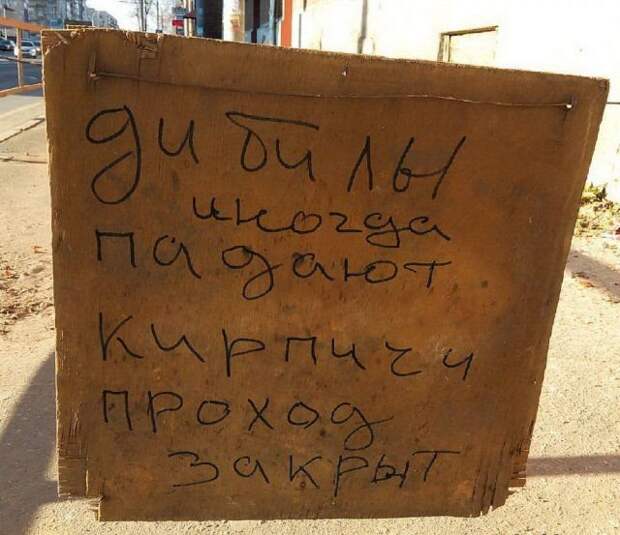 дибилы
иногда
падают
кирпичи
проход
закрыт